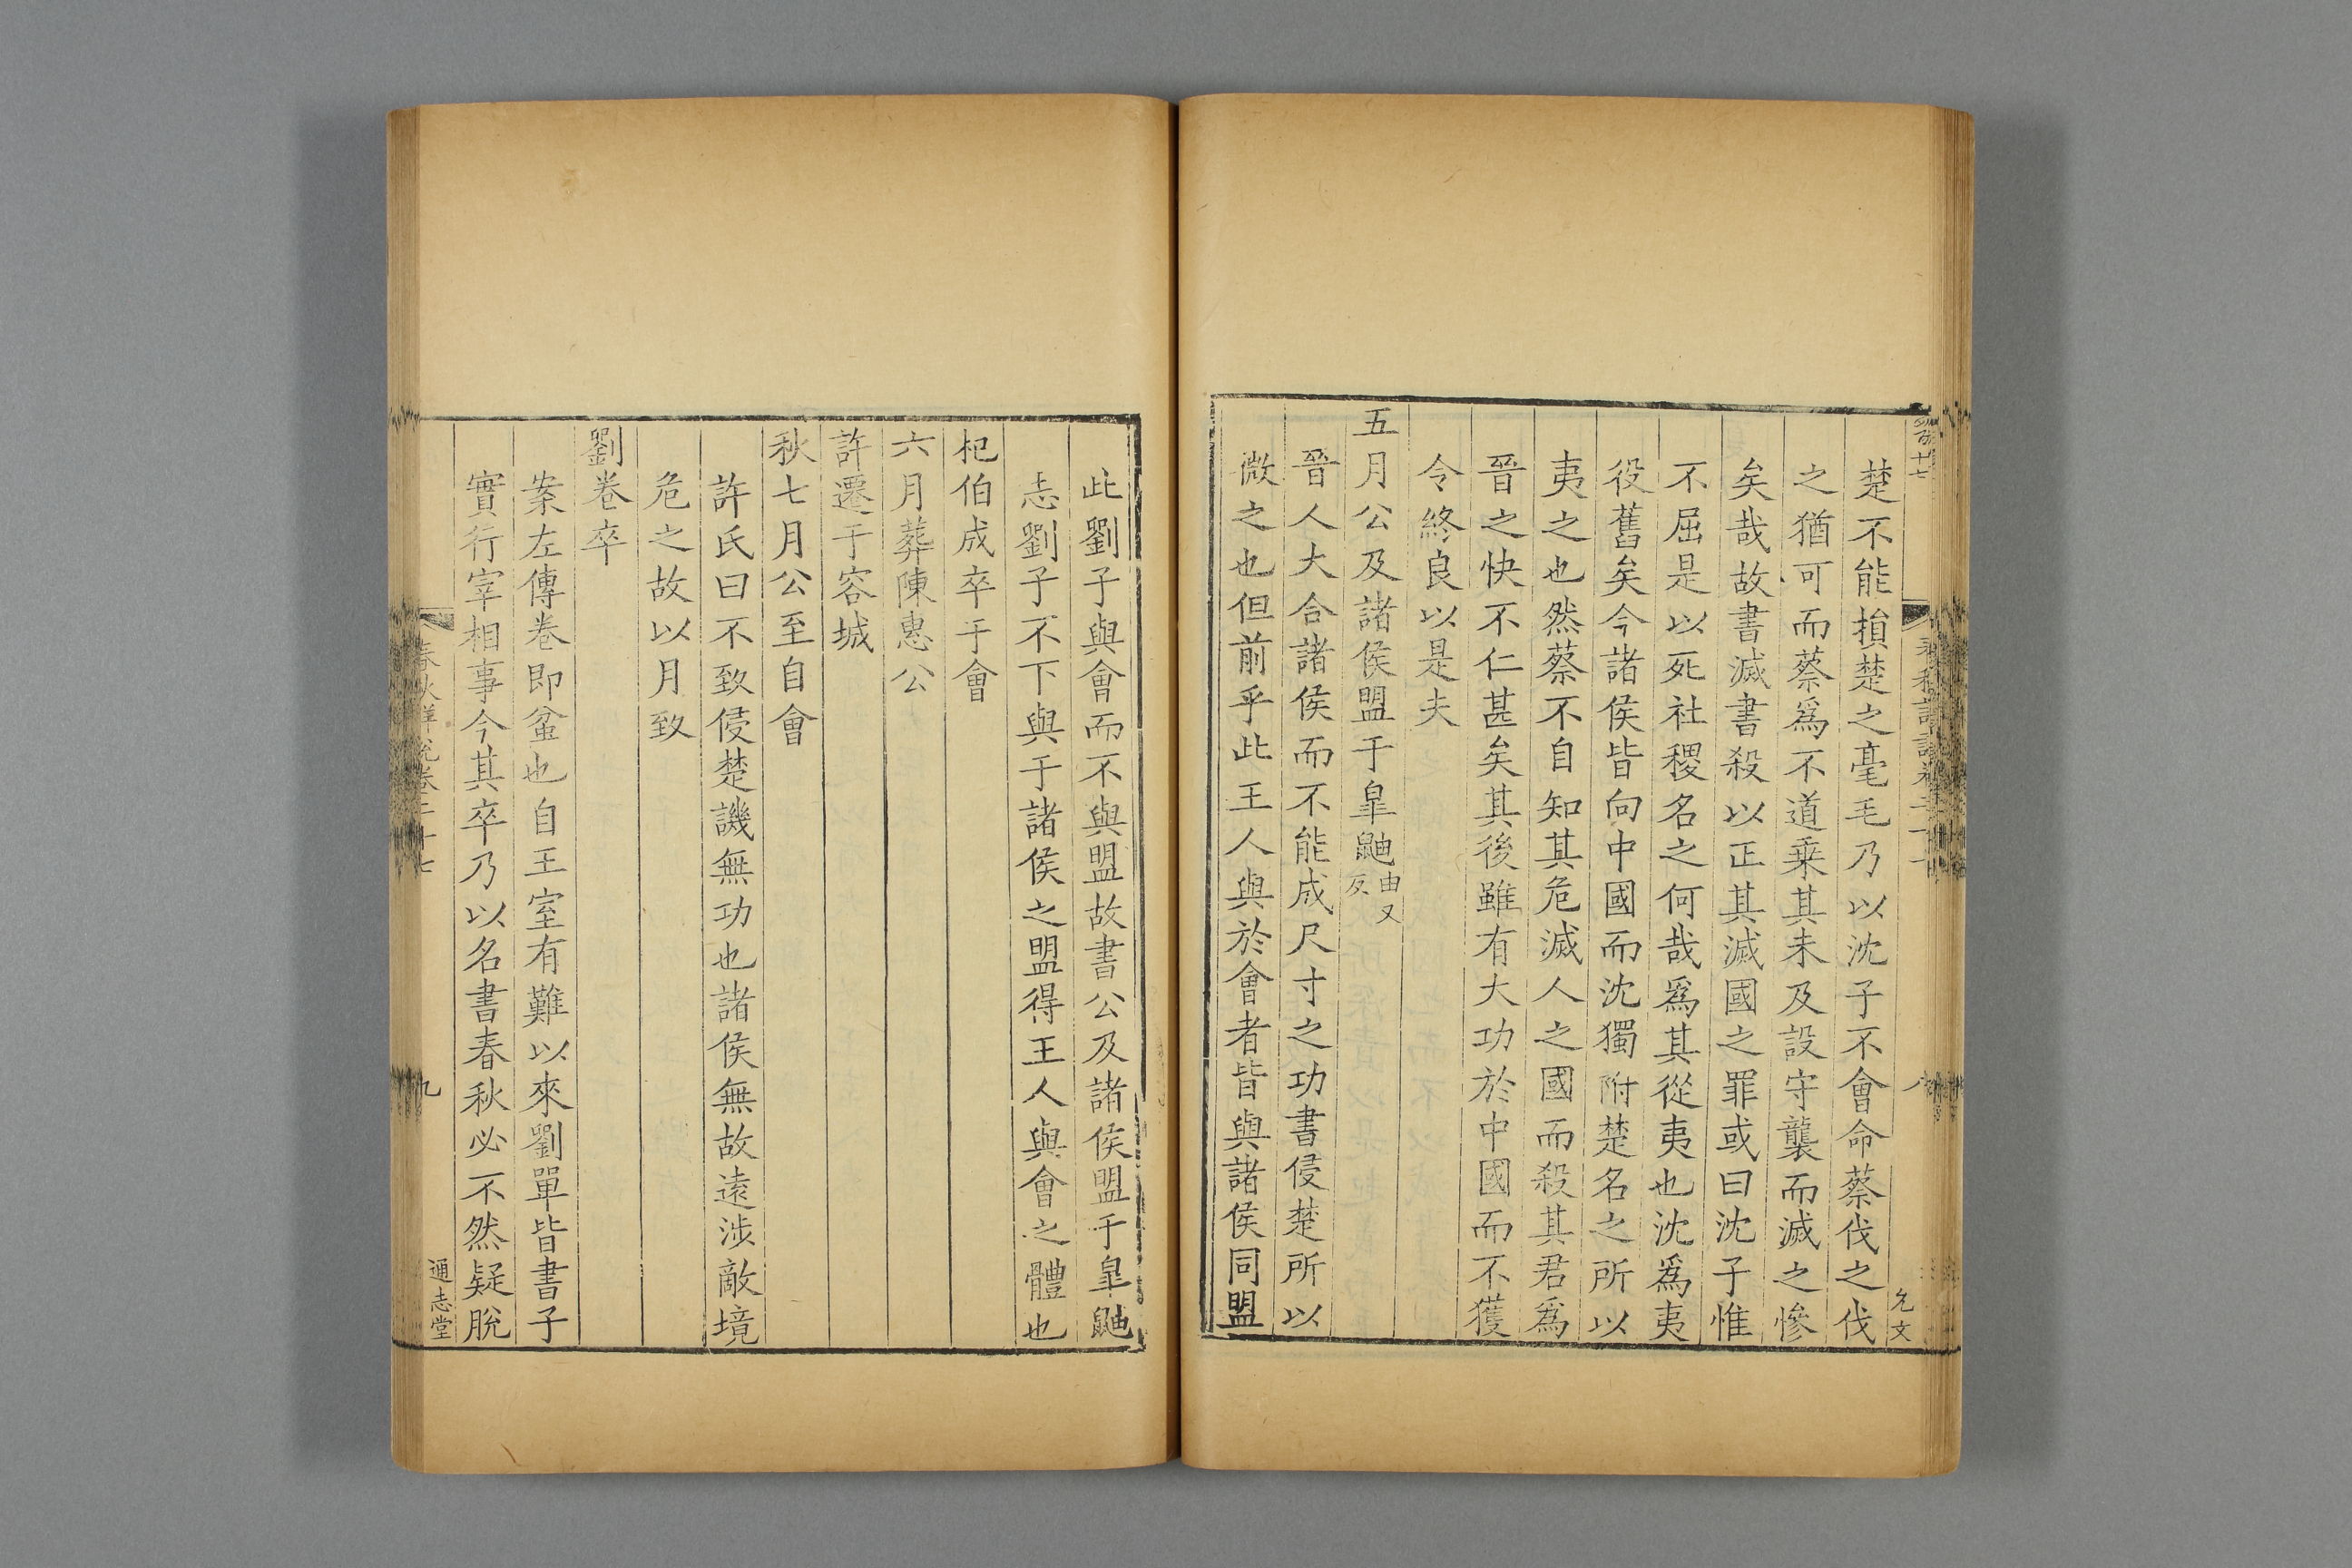 楚不能損楚之毫毛乃以沈子不會命蔡伐之伐
之猶可而蔡爲不道乗其未及設守襲而滅之慘
矣哉故書滅書殺以正其滅國之罪或曰沈子惟
不屈是以死社稷名之何哉爲其從夷也沈爲夷
役舊矣今諸侯皆向中國而沈獨附楚名之所以
夷之也然蔡不自知其危滅人之國而殺其君爲
晉之快不仁甚矣其後雖有大功於中國而不獲
令終良以是夫
五月公及諸侯盟于皐鼬由又反
晉人大合諸侯而不能成尺寸之功書侵楚所以
微之也但前乎此王人與於會者皆與諸侯同盟
此劉子與會而不與盟故書公及諸侯盟于皐鼬
志劉子不下與于諸侯之盟得王人與會之體也
杞伯成卒于會
六月葬陳惠公
許遷于容城
秋七月公至自會
許氏曰不致侵楚譏無功也諸侯無故遠涉敵境
危之故以月致
劉卷卒
案左傳卷即蚠也自王室有難以來劉單皆書子
實行宰相事今其卒乃以名書春秋必不然疑脫
春秋詳說卷二十七
九
通志堂